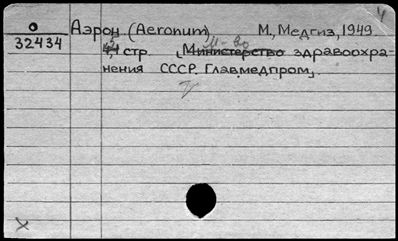 О
32434
Аэрон (Aeronum) М., Медгиз, 1949
стр. Министерство здравоохра-
нения СССР. Главмедпром.